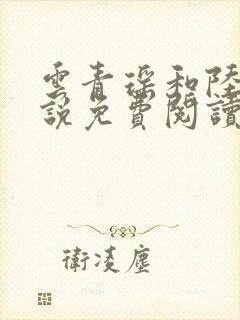 雲青瑤和陸
說免費閱讀
衛凌塵